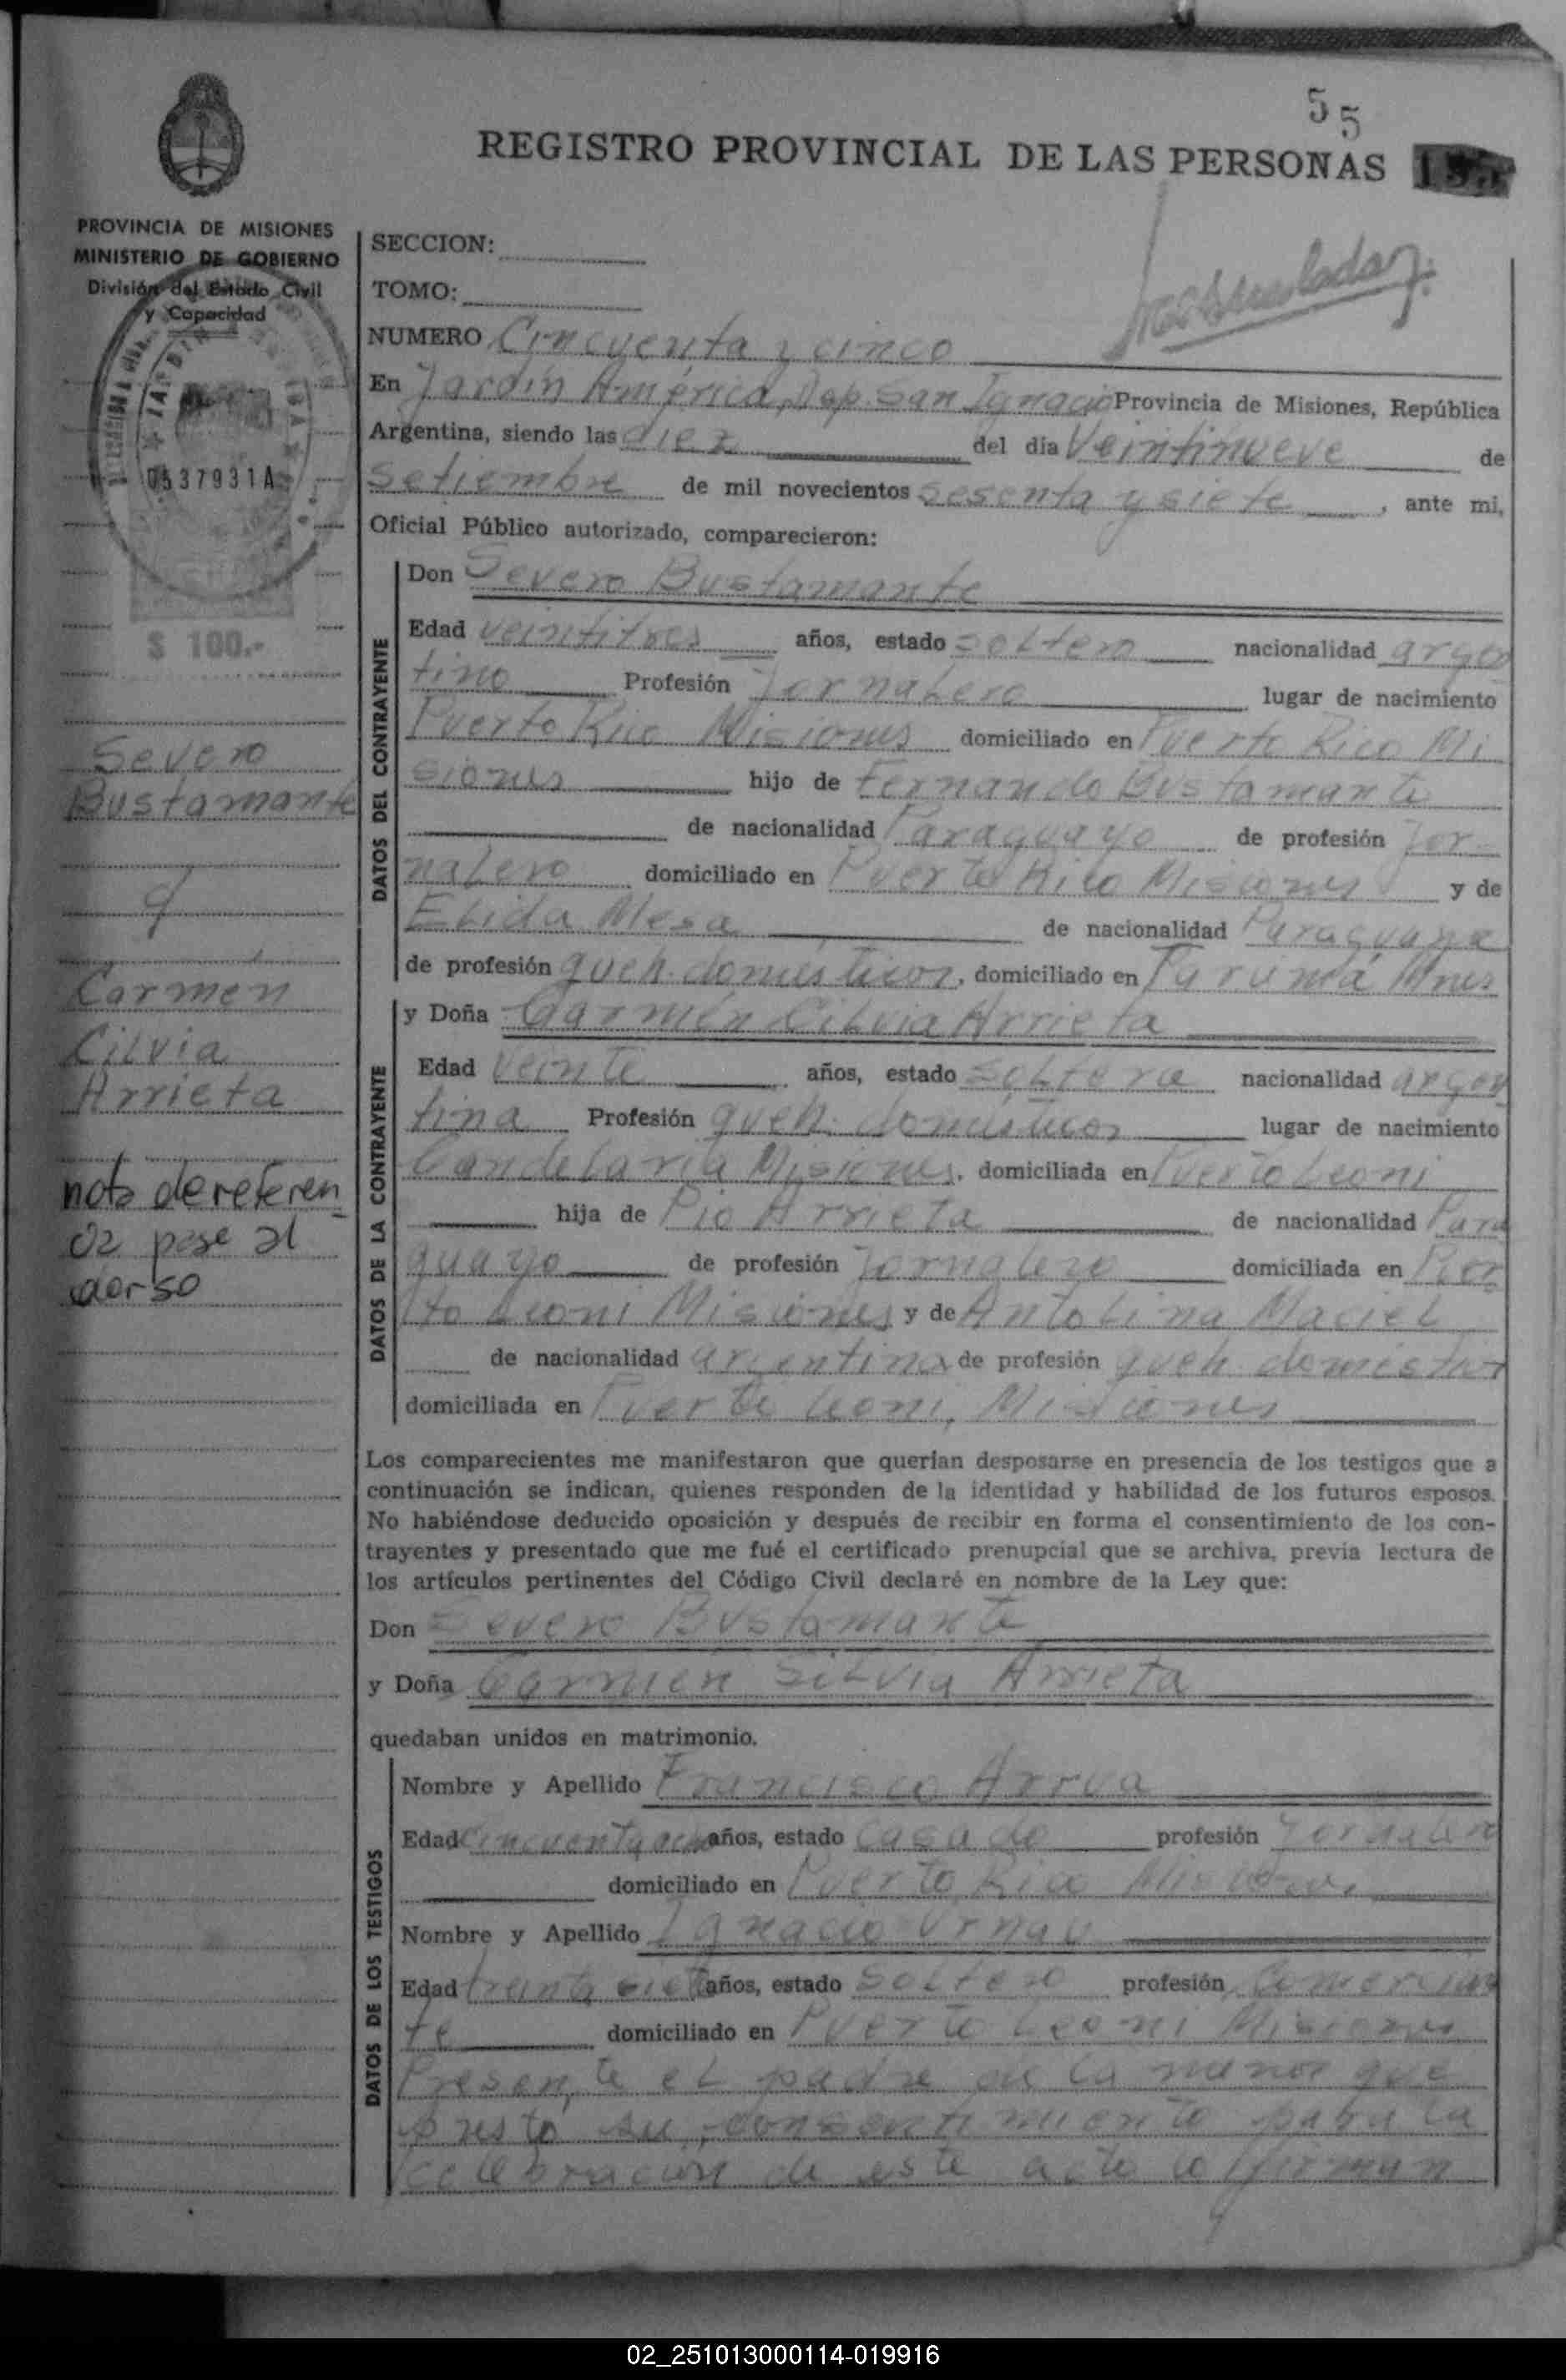 55
REGISTRO PROVINCIAL DE LAS PERSONAS
PROVINCIA DE MISIONES
MINISTERIO DE GOBIERNO
División del Estado Civil
y Capacidad
0537931A
$ 100.-
Severo
Bustamante
y
Carmen
Cilvia
Arrieta
nota de referen
cia pase al
dorso
SECCION:
TOMO:
NUMERO Cincuenta y cinco
En Jardín América, Dep. San Ignacio Provincia de Misiones, República
Argentina, siendo las diez del día Veintinueve de
Setiembre de mil novecientos sesenta y siete, ante mi,
Oficial Público autorizado, comparecieron:
DATOS DEL CONTRAYENTE
Don Severo Bustamante
Edad veintitres años, estado soltero nacionalidad argen
tino Profesión Jornalero lugar de nacimiento
Puerto Rico Misiones domiciliado en Puerto Rico Mi
siones hijo de Fernando Bustamante
de nacionalidad Paraguayo de profesión Jor-
nalero domiciliado en Puerto Rico Misiones y de
Elida Mesa de nacionalidad Paraguaya
de profesión queh. domesticos, domiciliado en Mnes
DATOS DE LA CONTRAYENTE
y Doña Carmen Cilvia Arrieta
Edad Veinte años, estado soltera nacionalidad argen
tina Profesión queh. domésticos lugar de nacimiento
Candelaria Misiones, domiciliada en Puerto Leoni
hija de Pio Arrieta de nacionalidad Para
guayo de profesión Jornalero domiciliada en Puer
to Leoni Misiones y de Antolina Maciel
de nacionalidad argentina de profesión queh domesticos
domiciliada en Puerto Leoni, Misiones
Los comparecientes me manifestaron que querían desposarse en presencia de los testigos que a
continuación se indican, quienes responden de la identidad y habilidad de los futuros esposos.
No habiéndose deducido oposición y después de recibir en forma el consentimiento de los con-
trayentes y presentado que me fué el certificado prenupcial que se archiva, previa lectura de
los artículos pertinentes del Código Civil declaré en nombre de la Ley que:
Don Severo Bustamante
y Doña Carmen Silvia Arrieta
quedaban unidos en matrimonio.
DATOS DE LOS TESTIGOS
Nombre y Apellido Francisco Arrua
Edad Cincuenta años, estado casado profesión Jornalero
domiciliado en Puerto Rico Misiones
Nombre y Apellido Ignacio
Edad treinta siete años, estado soltero profesión Comercian
te domiciliado en Puerto Leoni Misiones
Presente el padre de la menor que
presto su consentimiento para la
celebracion de este acto lo firman
02_251013000114-019916